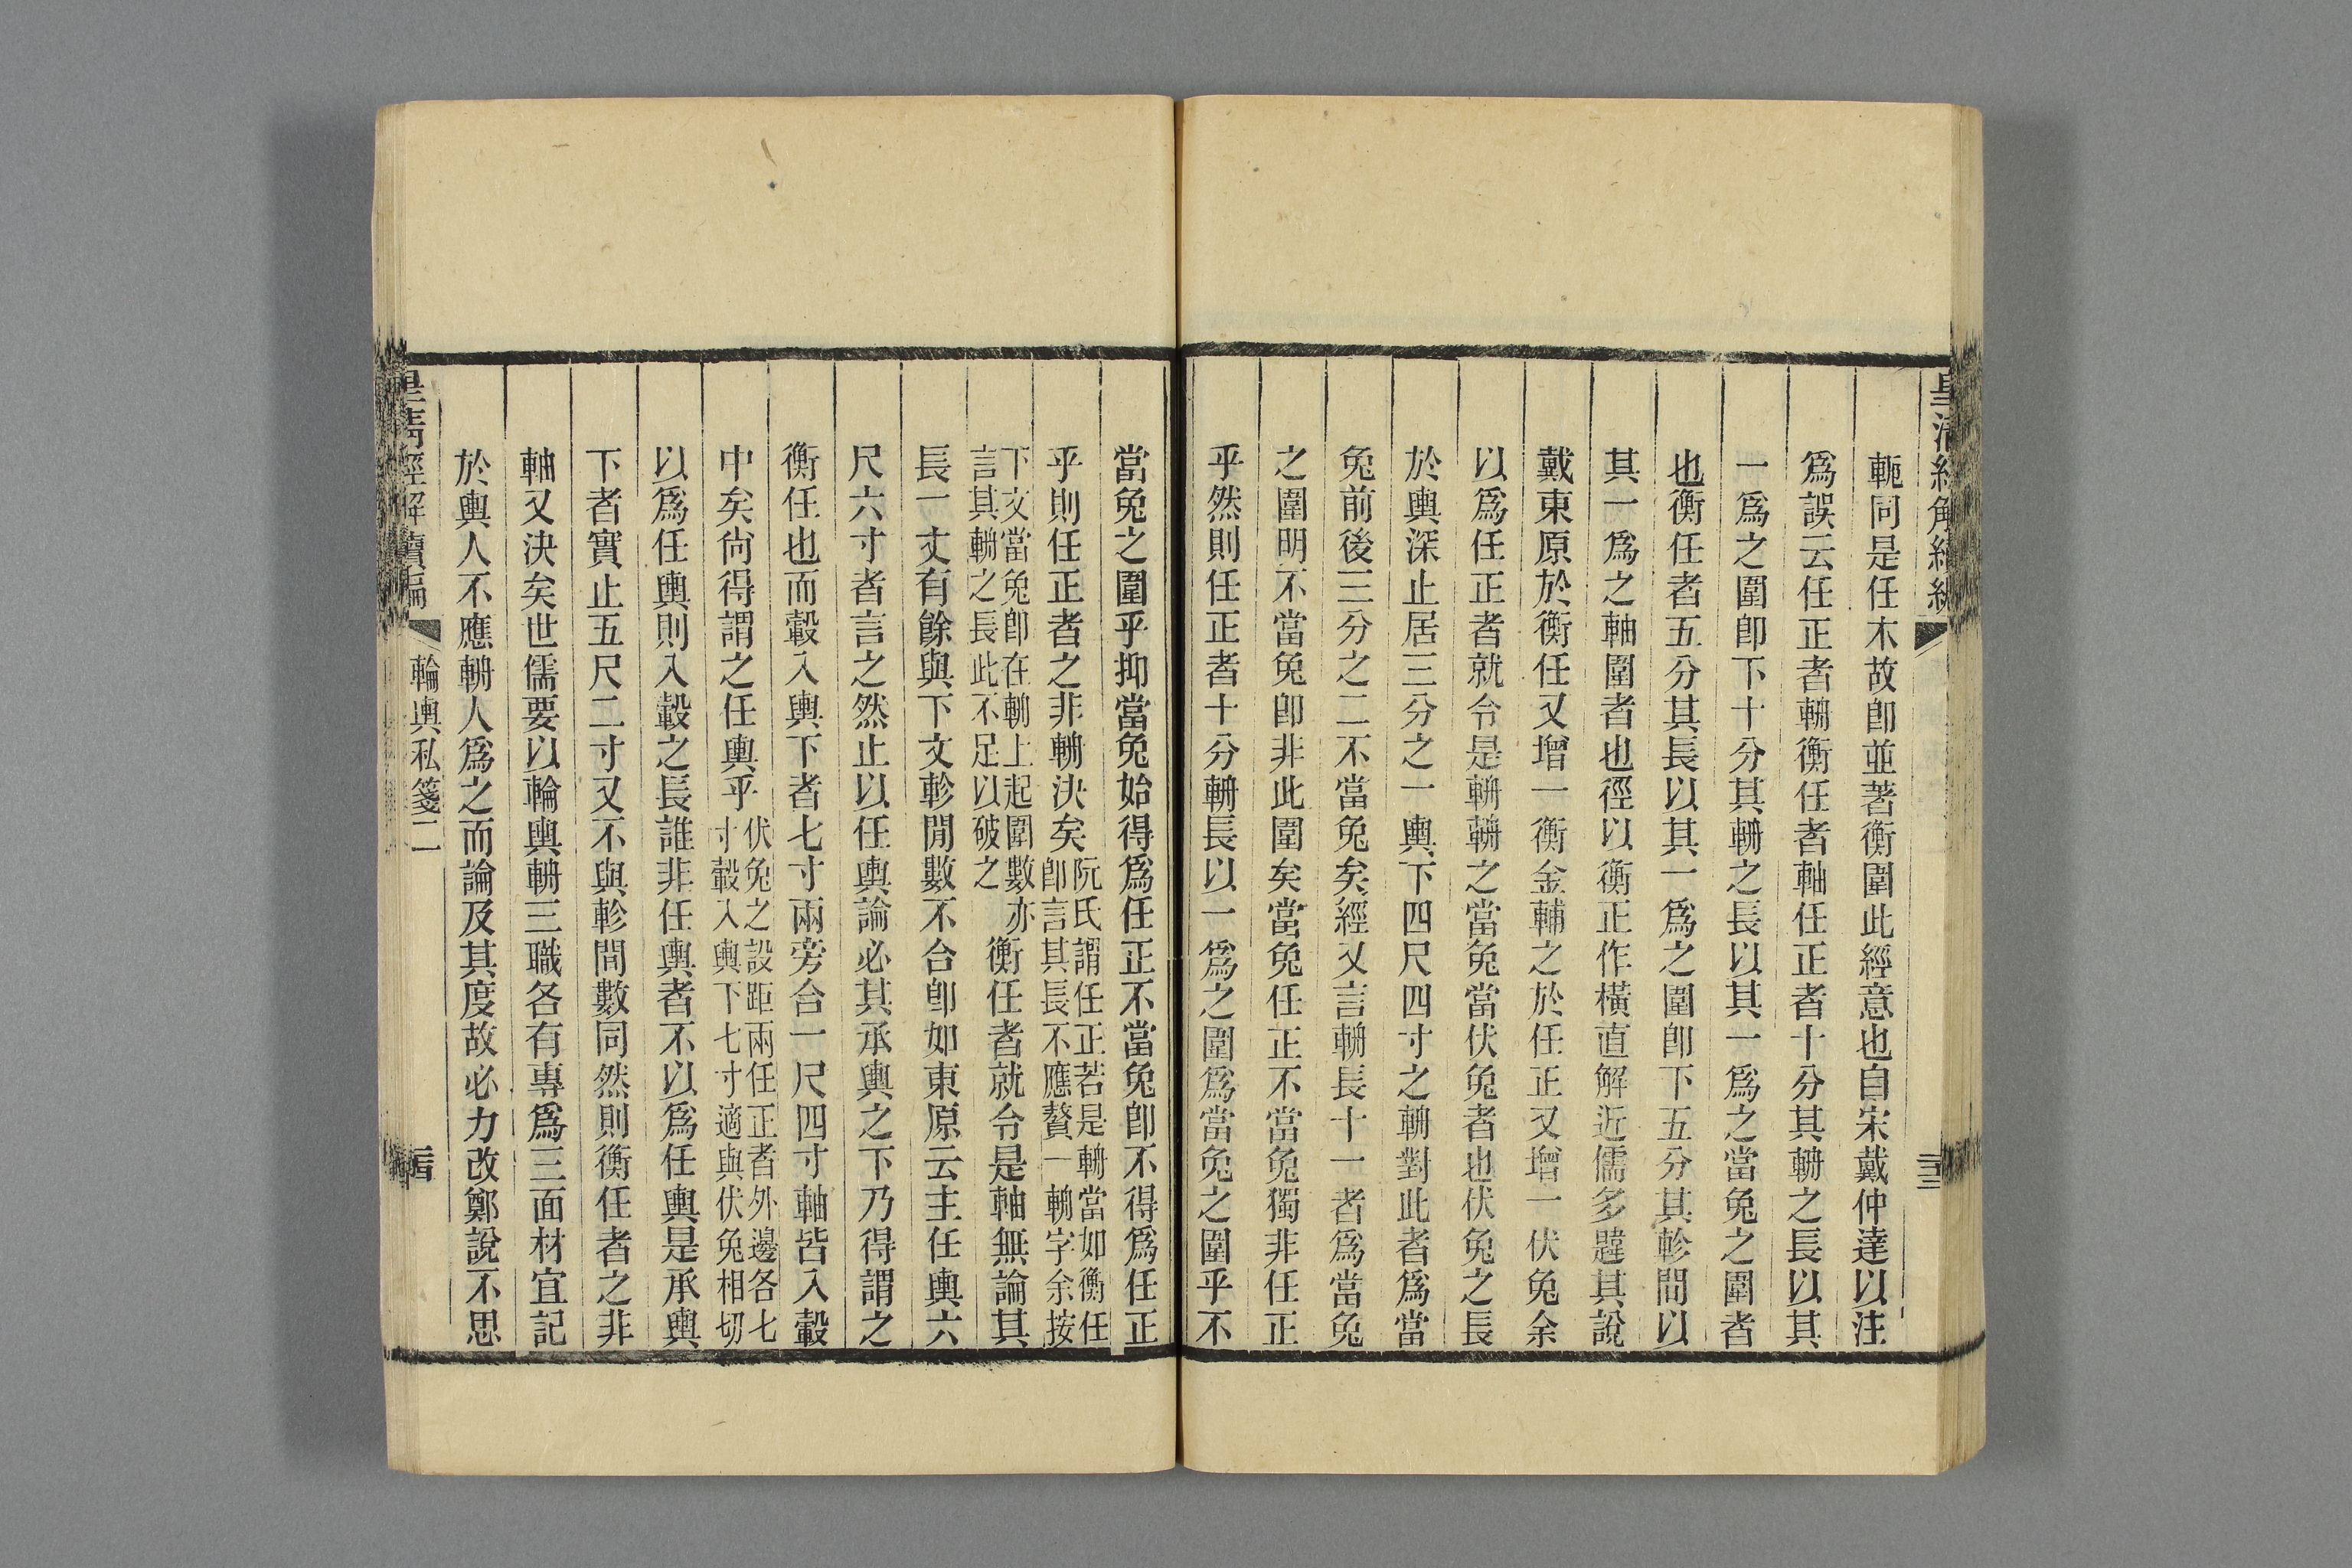 皇清經解續編
軛同是任木故卽並著衡圍此經意也自宋戴仲達以注
爲誤云任正者輈衡任者軸任正者十分其輈之長以其
一爲之圍卽下十分其輈之長以其一爲之當兔之圍者
也衡任者五分其長以其一爲之圍卽下五分其軫間以
其一爲之軸圍者也徑以衡正作橫直解近儒多韙其說
戴東原於衡任又增一衡金輔之於任正又增一伏兔余
以爲任正者就令是輈輈之當兔當伏兔者也伏兔之長
於輿深止居三分之一輿下四尺四寸之輈對此者爲當
兔前後三分之二不當兔矣經又言輈長十一者爲當兔
之圍明不當兔卽非此圍矣當兔任正不當兔獨非任正
乎然則任正者十分輈長以一爲之圍爲當兔之圍乎不
當兔之圍乎抑當兔始得爲任正不當兔卽不得爲任正
乎則任正者之非輈決矣阮氏謂任正若是輈當如衡任卽言其長不應贅一輈字余按
下文當兔卽在輈上起圍數亦言其輈之長此不足以破之衡任者就令是軸無論其
長一丈有餘與下文軫閒數不合卽如東原云主任輿六
尺六寸者言之然止以任輿論必其承輿之下乃得謂之
衡任也而轂入輿下者七寸兩旁合一尺四寸軸皆入轂
中矣尙得謂之任輿乎伏兔之設距兩任正者外邊各七寸轂入輿下七寸適與伏兔相切
以爲任輿則入轂之長誰非任輿者不以爲任輿是承輿
下者實止五尺二寸又不與軫間數同然則衡任者之非
軸又決矣世儒要以輪輿輈三職各有專爲三面材宜記
於輿人不應輈人爲之而論及其度故必力改鄭說不思
皇清經解續編
輪輿私箋二